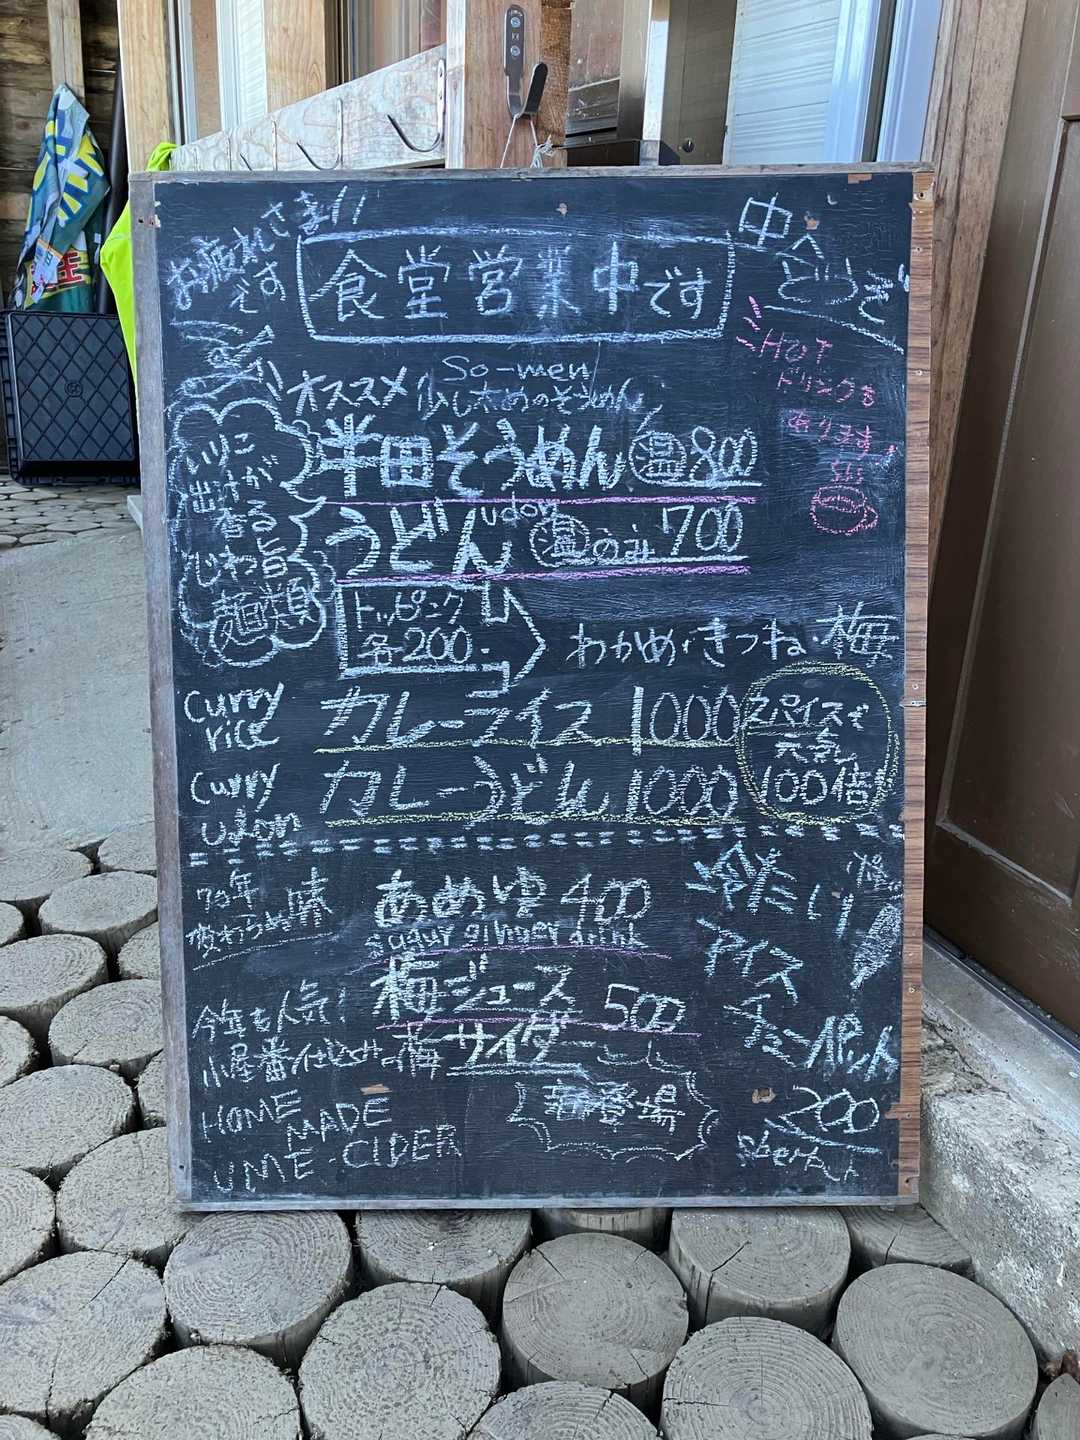 お疲れさまです
食堂営業中です
中へどうぞ
HOT
ドリンクも
あります
So-men
オススメ 少し太めのそうめん
半田そうめん 温 800
udon
うどん 温のみ 700
いりこ
出汁が
香る
じわ旨
麺類
トッピング
各200.
わかめ・きつね・梅
curry rice カレーライス 1000
curry udon カレーうどん 1000
スパイスで
元気
100倍
70年
変わらぬ味
あめゆ 400
sugar ginger drink
梅ジュース 500
梅サイダー
今年も人気!
小屋番仕込みの梅
HOME
MADE
UME-CIDER
新登場
冷たい
アイス
チューペット
200